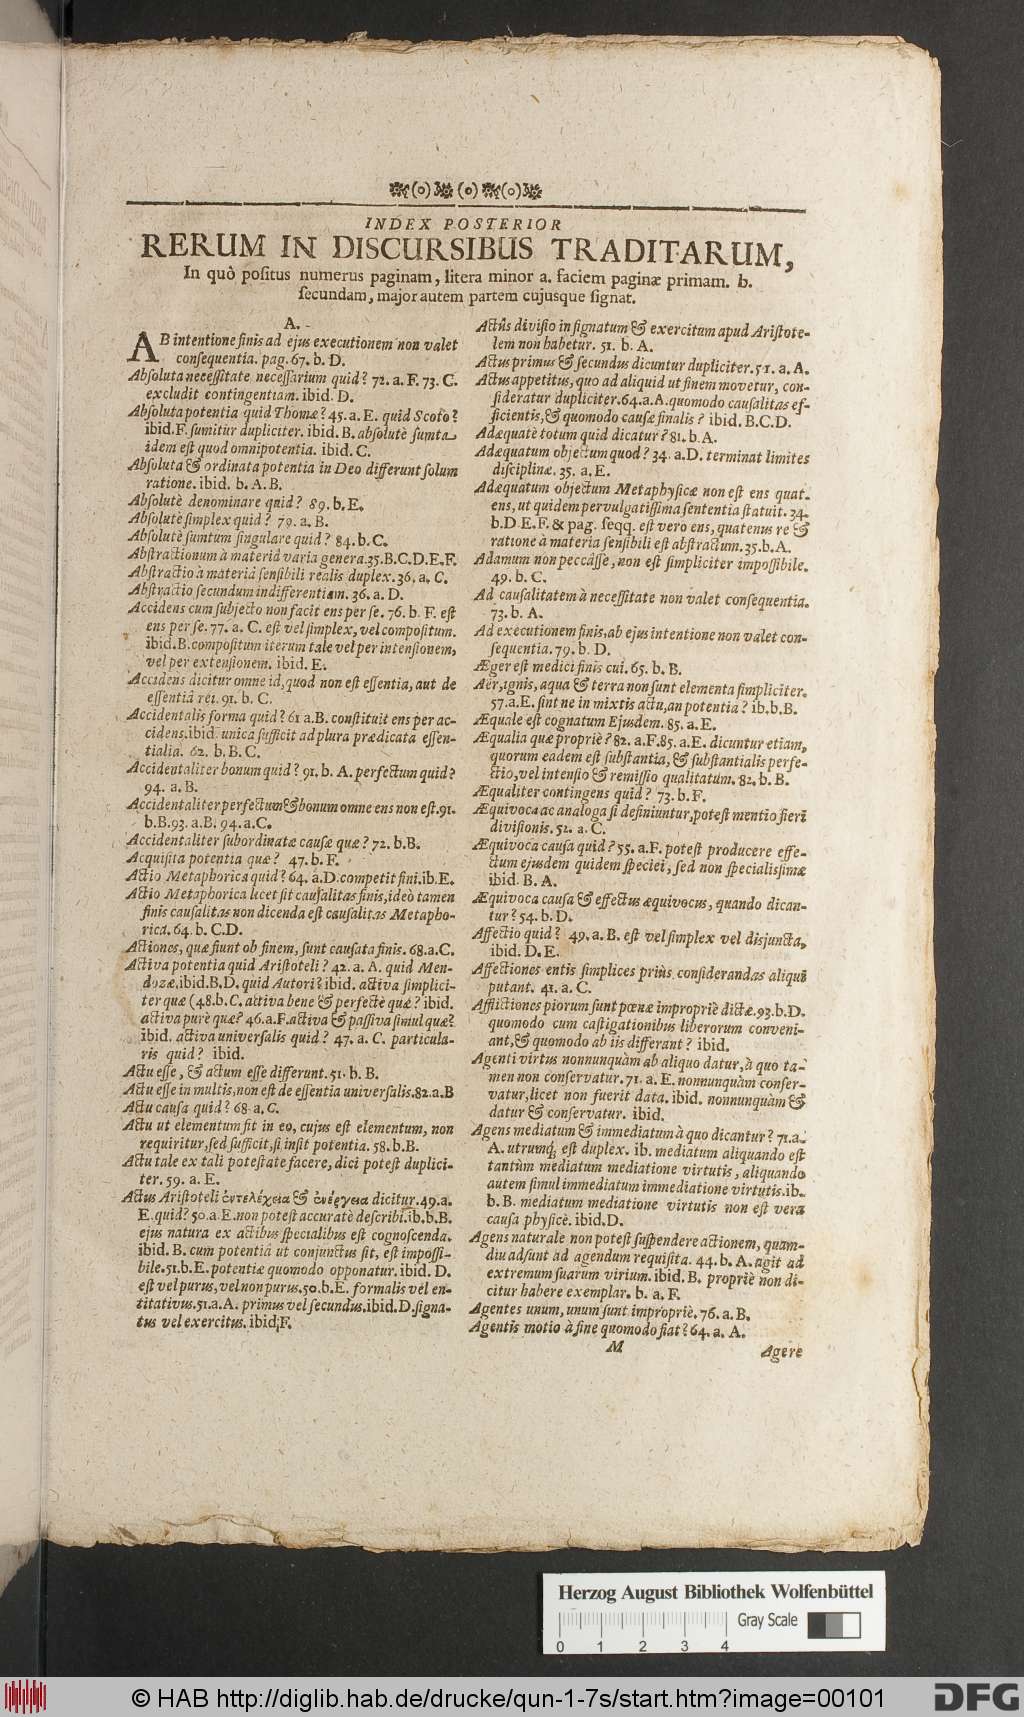 INDEX POSTERIOR
RERUM IN DISCURSIBUS TRADITARUM,
In quò positus numerus paginam, litera minor a. faciem paginæ primam. b.
secundam, major autem partem cujusque signat.
A.
AB intentione finis ad ejus executionem non valet
consequentia. pag. 67. b. D.
Absoluta necessitate necessarium quid? 72. a. F. 73. C.
excludit contingentiam. ibid. D.
Absoluta potentia quid Thomæ? 45. a. E. quid Scoto?
ibid. F. sumitur dupliciter. ibid. B. absolutè sumta
idem est quod omnipotentia. ibid. C.
Absoluta & ordinata potentia in Deo differunt solum
ratione. ibid. b. A. B.
Absolutè denominare quid? 89. b. E.
Absolutè simplex quid? 79. a. B.
Absolutè sumtum singulare quid? 84. b. C.
Abstractionum à materiâ varia genera. 35. B. C. D. E. F.
Abstractio à materiâ sensibili realis duplex. 36. a. C.
Abstractio secundum indifferentiam. 36. a. D.
Accidens cum subjecto non facit ens per se. 76. b. F. est
ens per se. 77. a. C. est vel simplex, vel compositum.
ibid. B. compositum iterum tale vel per intensionem,
vel per extensionem. ibid. E.
Accidens dicitur omne id, quod non est essentia, aut de
essentiâ rei. 91. b. C.
Accidentalis forma quid? 61 a. B. constituit ens per ac-
cidens. ibid. unica sufficit ad plura prædicata essen-
tialia. 62. b. B. C.
Accidentaliter bonum quid? 91. b. A. perfectum quid?
94. a. B.
Accidentaliter perfectum & bonum omne ens non est. 91.
b. B. 93. a. B. 94. a. C.
Accidentaliter subordinatæ causæ quæ? 72. b. B.
Acquisita potentia quæ? 47. b. F.
Actio Metaphorica quid? 64. a. D. competit fini. ib. E.
Actio Metaphorica licet sit causalitas finis, ideò tamen
finis causalitas non dicenda est causalitas Metapho-
rica. 64. b. C. D.
Actiones, quæ fiunt ob finem, sunt causata finis. 68. a. C.
Activa potentia quid Aristoteli? 42. a. A. quid Men-
dozæ. ibid. B. D. quid Autori? ibid. activa simplici-
ter quæ (48. b. C. activa bene & perfectè quæ? ibid.
activa purè quæ? 46. a. F. activa & passiva simul quæ?
ibid. activa universalis quid? 47. a. C. particula-
ris quid? ibid.
Actu esse, & actum esse differunt. 51. b. B.
Actu esse in multis, non est de essentia universalis. 82. a. B
Actu causa quid? 68. a. C.
Actu ut elementum sit in eo, cujus est elementum, non
requiritur, sed sufficit, si insit potentia. 58. b. B.
Actu tale ex tali potestate facere, dici potest duplici-
ter. 59. a. E.
Actus Aristoteli ἐντελέχεια & ἐνέργεια dicitur. 49. a.
E. quid? 50. a. E. non potest accuratè describi. ib. b. B.
ejus natura ex actibus specialibus est cognoscenda.
ibid. B. cum potentiâ ut conjunctus sit, est impossi-
bile. 51. b. E. potentiæ quomodo opponatur. ibid. D.
est vel purus, vel non purus. 50. b. E. formalis vel en-
titativus. 51. a. A. primus vel secundus. ibid. D. signa-
tus vel exercitus. ibid. F.
Actûs divisio in signatum & exercitum apud Aristote-
lem non habetur. 51. b. A.
Actus primus & secundus dicuntur dupliciter. 51. a. A.
Actus appetitus, quo ad aliquid ut finem movetur, con-
sideratur dupliciter. 64. a. A. quomodo causalitas ef-
ficientis, & quomodo causæ finalis? ibid. B. C. D.
Adæquatè totum quid dicatur? 81. b. A.
Adæquatum objectum quod? 34. a. D. terminat limites
disciplinæ. 35. a. E.
Adæquatum objectum Metaphysicæ non est ens quat.
ens, ut quidem pervulgatissima sententia statuit. 34.
b. D. E. F. & pag. seqq. est vero ens, quatenus re &
ratione à materia sensibili est abstractum. 35. b. A.
Adamum non peccâsse, non est simpliciter impossibile.
49. b. C.
Ad causalitatem à necessitate non valet consequentia.
73. b. A.
Ad executionem finis, ab ejus intentione non valet con-
sequentia. 79. b. D.
Æger est medici finis cui. 65. b. B.
Aër, ignis, aqua & terra non sunt elementa simpliciter.
57. a. E. sint ne in mixtis actu, an potentia? ib. b. B.
Æquale est cognatum Ejusdem. 85. a. E.
Æqualia quæ propriè? 82. a. F. 85. a. E. dicuntur etiam,
quorum eadem est substantia, & substantialis perfe-
ctio, vel intensio & remissio qualitatum. 82. b. B.
Æqualiter contingens quid? 73. b. F.
Æquivoca ac analoga si definiuntur, potest mentio fieri
divisionis. 52. a. C.
Æquivoca causa quid? 55. a. F. potest producere effe-
ctum ejusdem quidem speciei, sed non specialissimæ
ibid. B. A.
Æquivoca causa & effectus æquivocus, quando dican-
tur? 54. b. D.
Affectio quid? 49. a. B. est vel simplex vel disjuncta,
ibid. D. E.
Affectiones entis simplices priùs considerandas aliqui
putant. 41. a. C.
Afflictiones piorum sunt pœnæ impropriè dictæ. 93. b. D.
quomodo cum castigationibus liberorum conveni-
ant, & quomodo ab iis differant? ibid.
Agenti virtus nonnunquàm ab aliquo datur, à quo ta-
men non conservatur. 71. a. E. nonnunquàm conser-
vatur, licet non fuerit data. ibid. nonnunquàm &
datur & conservatur. ibid.
Agens mediatum & immediatum à quo dicantur? 71. a.
A. utrumq; est duplex. ib. mediatum aliquando est
tantùm mediatum mediatione virtutis, aliquando
autem simul immediatum immediatione virtutis. ib.
b. B. mediatum mediatione virtutis non est vera
causa physicè. ibid. D.
Agens naturale non potest suspendere actionem, quam-
diu adsunt ad agendum requisita. 44. b. A. agit ad
extremum suarum virium. ibid. B. propriè non di-
citur habere exemplar. b. a. F.
Agentes unum, unum sunt impropriè. 76. a. B.
Agentis motio à fine quomodo fiat? 64. a. A.
M
Agere
Herzog August Bibliothek Wolfenbüttel
Gray Scale
0 1 2 3 4
© HAB http://diglib.hab.de/drucke/qun-1-7s/start.htm?image=00101
DFG